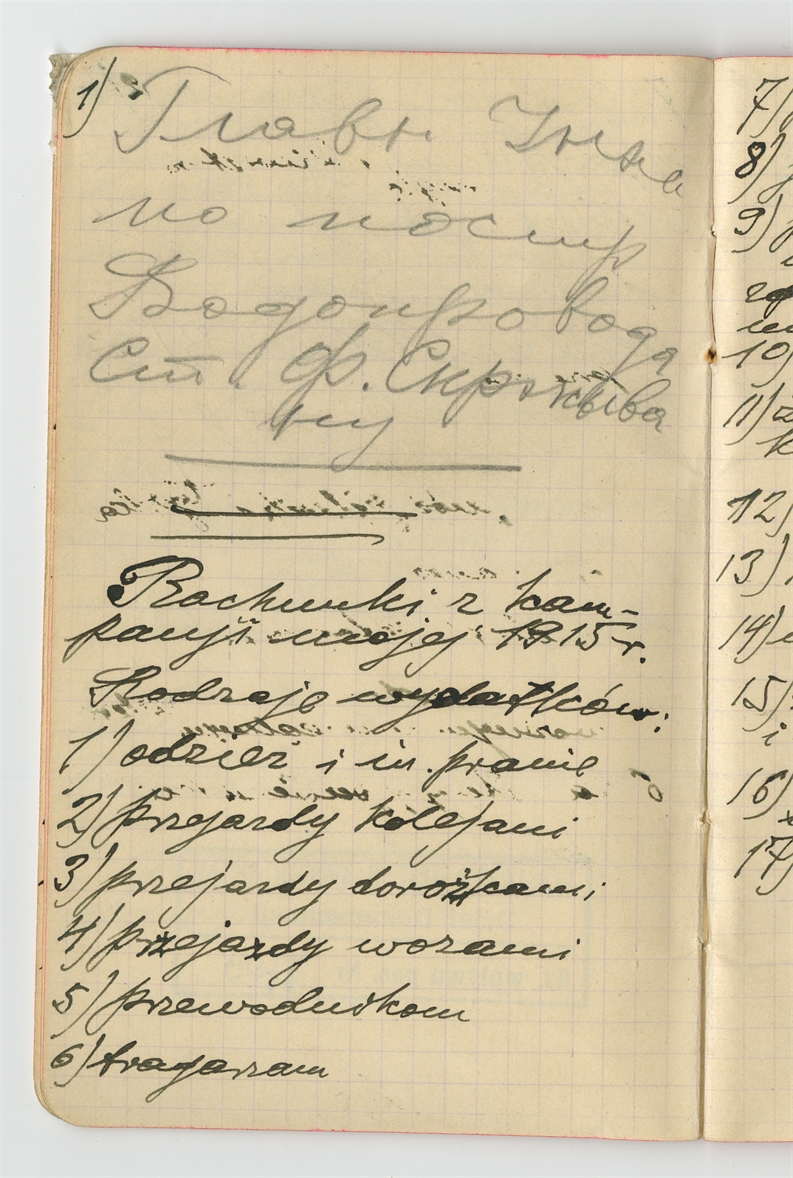 1)
Главн.
по постр
Водопровода
Ст. Ф. Скржива
ну
Rachunki z kam-
panji mojej 1915 r.
Rodzaje wydatków:
1) odzież i in. pranie
2) przejazdy kolejami
3) przejazdy dorożkami
4) przejazdy wozami
5) przewodnikom
6) tragarzam
7)
8)
9)
10)
11) z
k
12)
13)
14)
15)
i
16)
17)